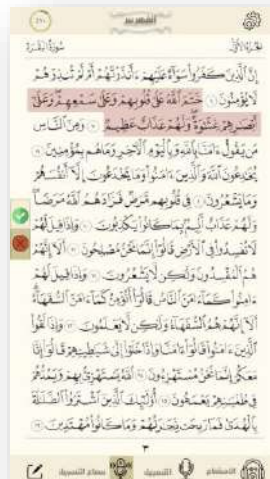 التسميع
سورة البقرة
الجزء الأول
إن الذين كفروا سواء عليهم ءأنذرتهم أم لم تنذرهم
لا يؤمنون ٦ ختم الله على قلوبهم وعلى سمعهم وعلى
أبصرهم غشوة ولهم عذاب عظيم ٧ ومن الناس
من يقول ءامنا بالله وباليوم الآخر وما هم بمؤمنين ٨
يخدعون الله والذين ءامنوا وما يخدعون إلا أنفسهم
وما يشعرون ٩ في قلوبهم مرض فزادهم الله مرضا
ولهم عذاب أليم بما كانوا يكذبون ١٠ وإذا قيل لهم
لا تفسدوا في الأرض قالوا إنما نحن مصلحون ١١ ألا إنهم
هم المفسدون ولكن لا يشعرون ١٢ وإذا قيل لهم
ءامنوا كما ءامن الناس قالوا أنؤمن كما ءامن السفهاء
ألا إنهم هم السفهاء ولكن لا يعلمون ١٣ وإذا لقوا
الذين ءامنوا قالوا ءامنا وإذا خلوا إلى شيطينهم قالوا إنا
معكم إنما نحن مستهزءون ١٤ الله يستهزئ بهم ويمدهم
في طغينهم يعمهون ١٥ أولئك الذين اشتروا الضللة
بالهدى فما ربحت تجرتهم وما كانوا مهتدين ١٦
٣
الاستماع
التسميع